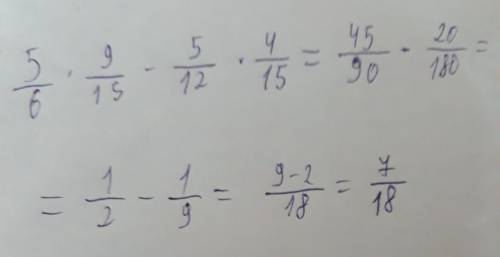 5/6 · 9/15 - 5/12 · 4/15 = 45/90 - 20/180 =
= 1/2 - 1/9 = 9-2/18 = 7/18